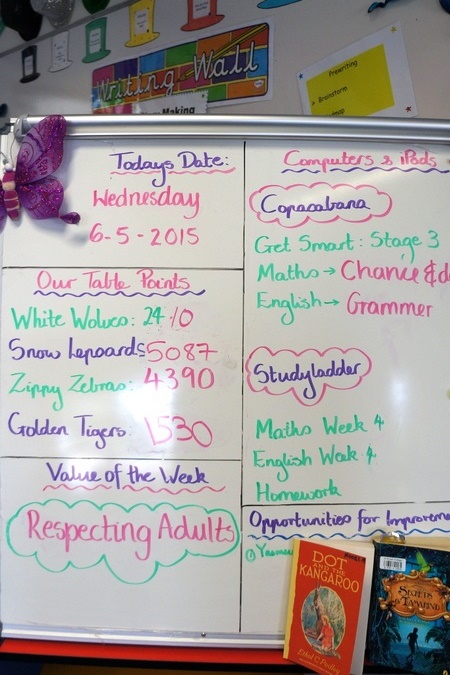 Writing Wall
Prewriting
Brainstorm
Making
Todays Date:
Wednesday
6-5-2015
Our Table Points
White Wolves: 2410
Snow Lepoards: 5087
Zippy Zebras: 4390
Golden Tigers: 1530
Value of the Week
Respecting Adults
Computers & iPads
Copacabana
Get Smart: Stage 3
Maths → Chance & d
English → Grammer
Studyladder
Maths Week 4
English Week 4
Homework
Opportunities for Improveme
DOT
AND THE
KANGAROO
Ethel C. Pedley
SECRETS
OF TAMARIND